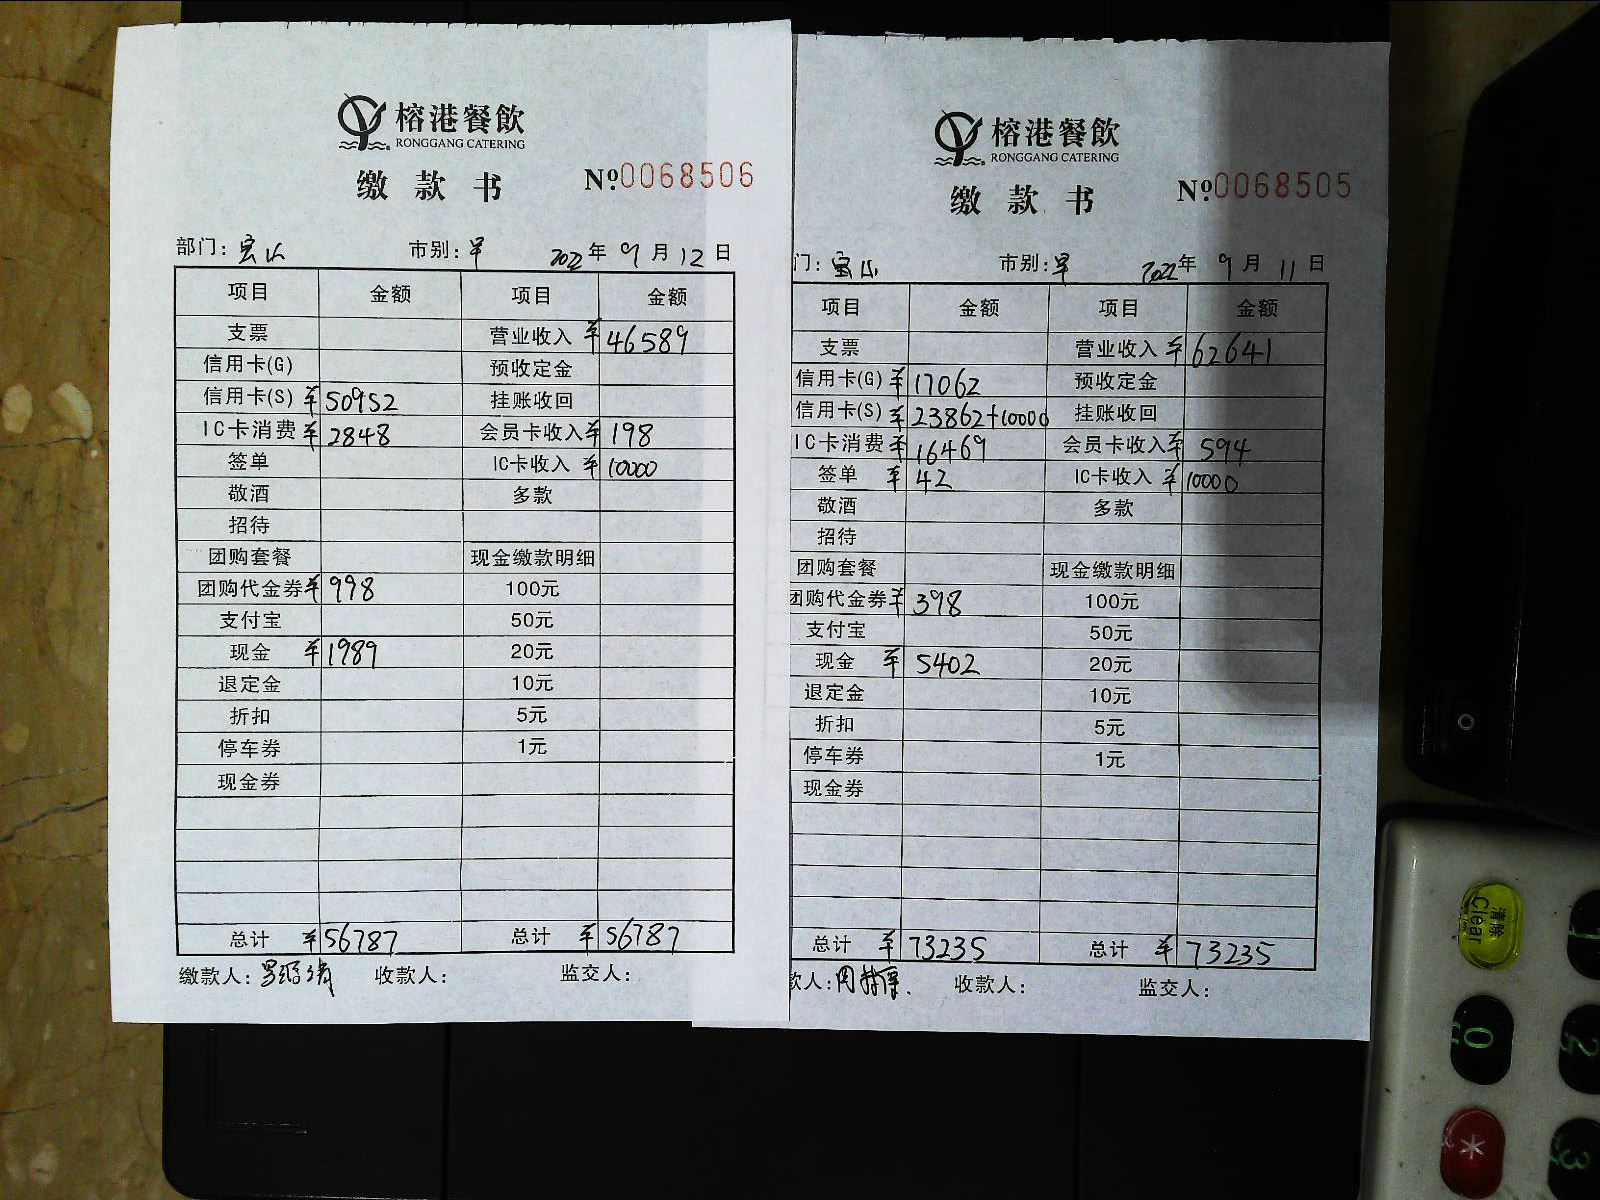 榕港餐飲
RONGGANG CATERING
缴款书 Nº.0068506
部门: 宝山 市别: 早 2022年9月12日
项目 金额 项目 金额
支票 营业收入 ¥46589
信用卡(G) 预收定金
信用卡(S) ¥50952 挂账收回
IC卡消费 ¥2848 会员卡收入 ¥198
签单 IC卡收入 ¥10000
敬酒 多款
招待
团购套餐 现金缴款明细
团购代金券 ¥998 100元
支付宝 50元
现金 ¥1989 20元
退定金 10元
折扣 5元
停车券 1元
现金券
总计 ¥56787 总计 ¥56787
缴款人: 收款人: 监交人:
榕港餐飲
RONGGANG CATERING
缴款书 Nº.0068505
门: 宝山 市别: 早 2022年9月11日
项目 金额 项目 金额
支票 营业收入 ¥62641
信用卡(G) ¥17062 预收定金
信用卡(S) ¥23862+10000 挂账收回
IC卡消费 ¥16469 会员卡收入 ¥594
签单 ¥42 IC卡收入 ¥10000
敬酒 多款
招待
团购套餐 现金缴款明细
团购代金券 ¥398 100元
支付宝 50元
现金 ¥5402 20元
退定金 10元
折扣 5元
停车券 1元
现金券
总计 ¥73235 总计 ¥73235
款人: 收款人: 监交人:
清除
Clear
0
*
1
2
3